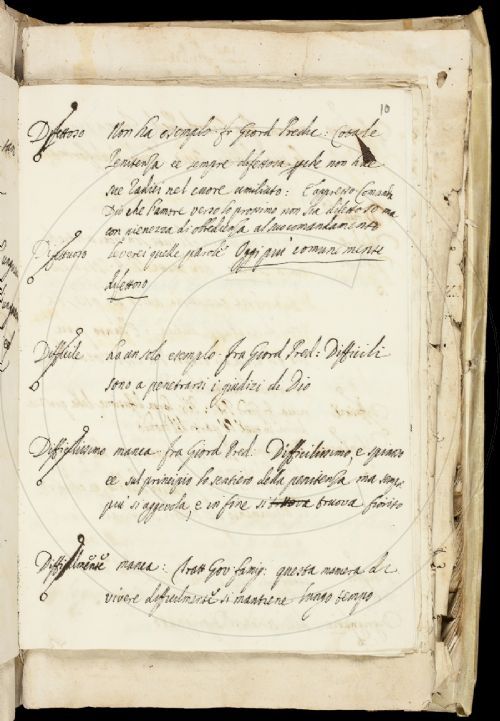 10
Difettoso Non ha esempio. fr Giord Predic: Cotale
Penitenza è sempre difettosa perche non ha le
sue radici nel cuore umiliato: E appresso Comanda
Dio che l'amore verso lo prossimo non sia difettoso ma
con pienezza di obbedienza al suo comandamento
Difettuoso leverei quelle parole Oggi piu comunemente
difettoso
Difficile ha un solo esempio. fra Giord Pred: Difficili
sono a penetrarsi i giudizi di Dio
Difficilissimo manca. fra Giord Pred: Difficilissimo, e spinoso
è sul principio lo sentiero della penitenza, ma sempre
piu si aggevola, e in fine si truova fiorito
Difficilmente manca: Tratt Gov famig: questa maniera di
vivere difficilmente si mantiene lungo tempo